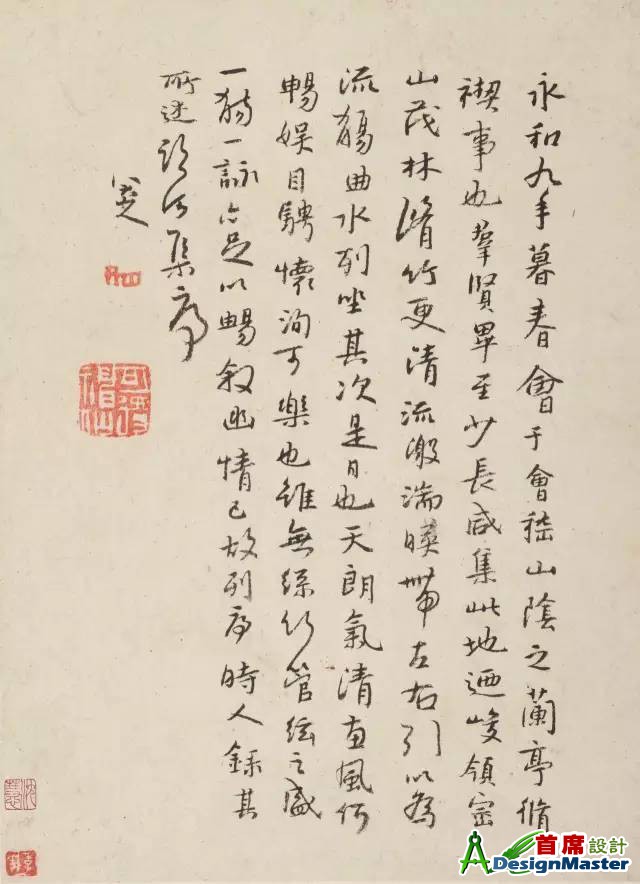 永和九年暮春會于會嵇山陰之蘭亭脩
禊事也羣賢畢至少長咸集此地迺峻領崇
山茂林脩竹更清流激湍暎帶左右引以為
流觴曲水列坐其次是日也天朗氣清惠風和
暢娛目騁懷洵可樂也雖無絲竹管絃之盛
一觴一詠亦足以暢敘幽情已故列序時人錄其
所述臨河集序
八大山人
可得神仙
首席設計
DesignMaster